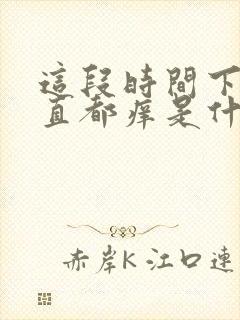 這段時間下
直都痒是什
赤岸K 江口連